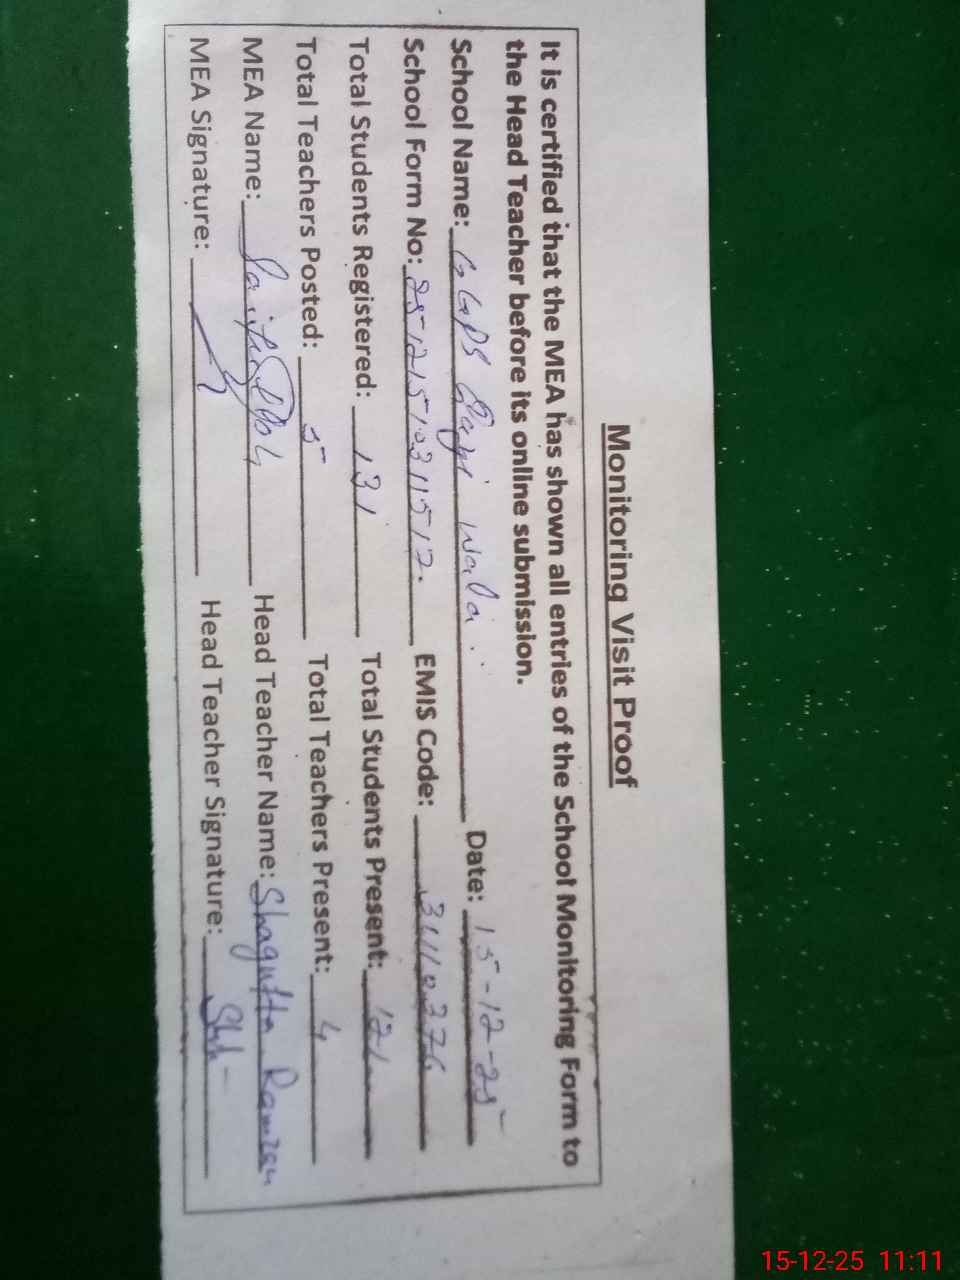 Monitoring Visit Proof
It is certified that the MEA has shown all entries of the School Monitoring Form to
the Head Teacher before its online submission.
School Name: GGPS wala Date: 15-12-25
School Form No: EMIS Code: 31110376
Total Students Registered: 131 Total Students Present: 121
Total Teachers Posted: 5 Total Teachers Present: 4
MEA Name: Head Teacher Name: Shagufta Ramzan
MEA Signature: Head Teacher Signature:
15-12-25 11:11